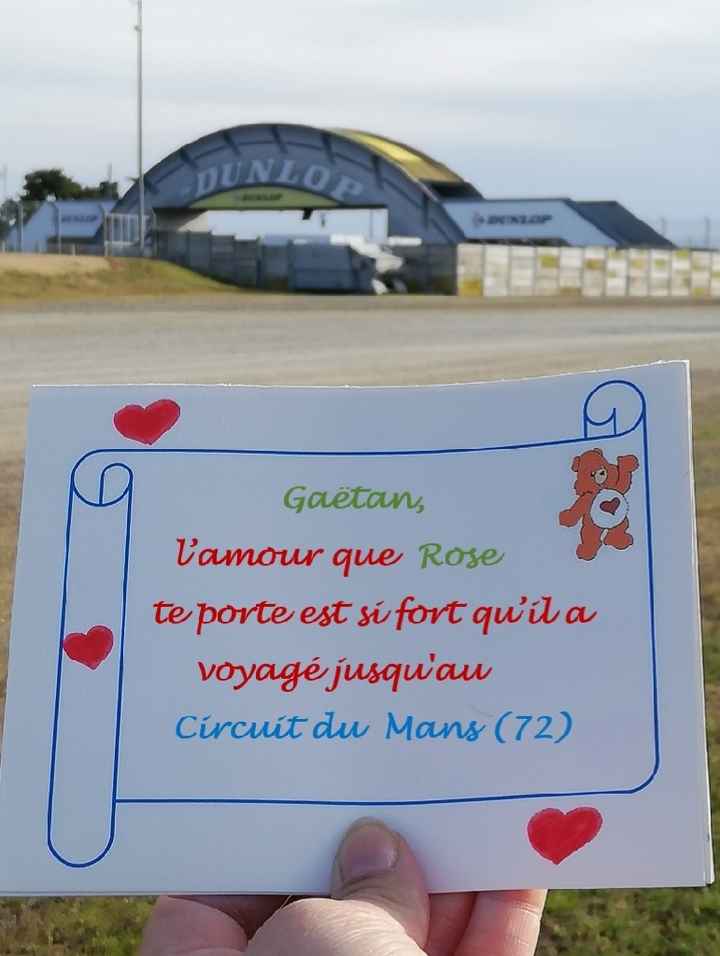 DUNLOP
DUNLOP
DUNLOP
DUNLOP
Gaëtan,
l'amour que Rose
te porte est si fort qu'il a
voyagé jusqu'au
Circuit du Mans (72)